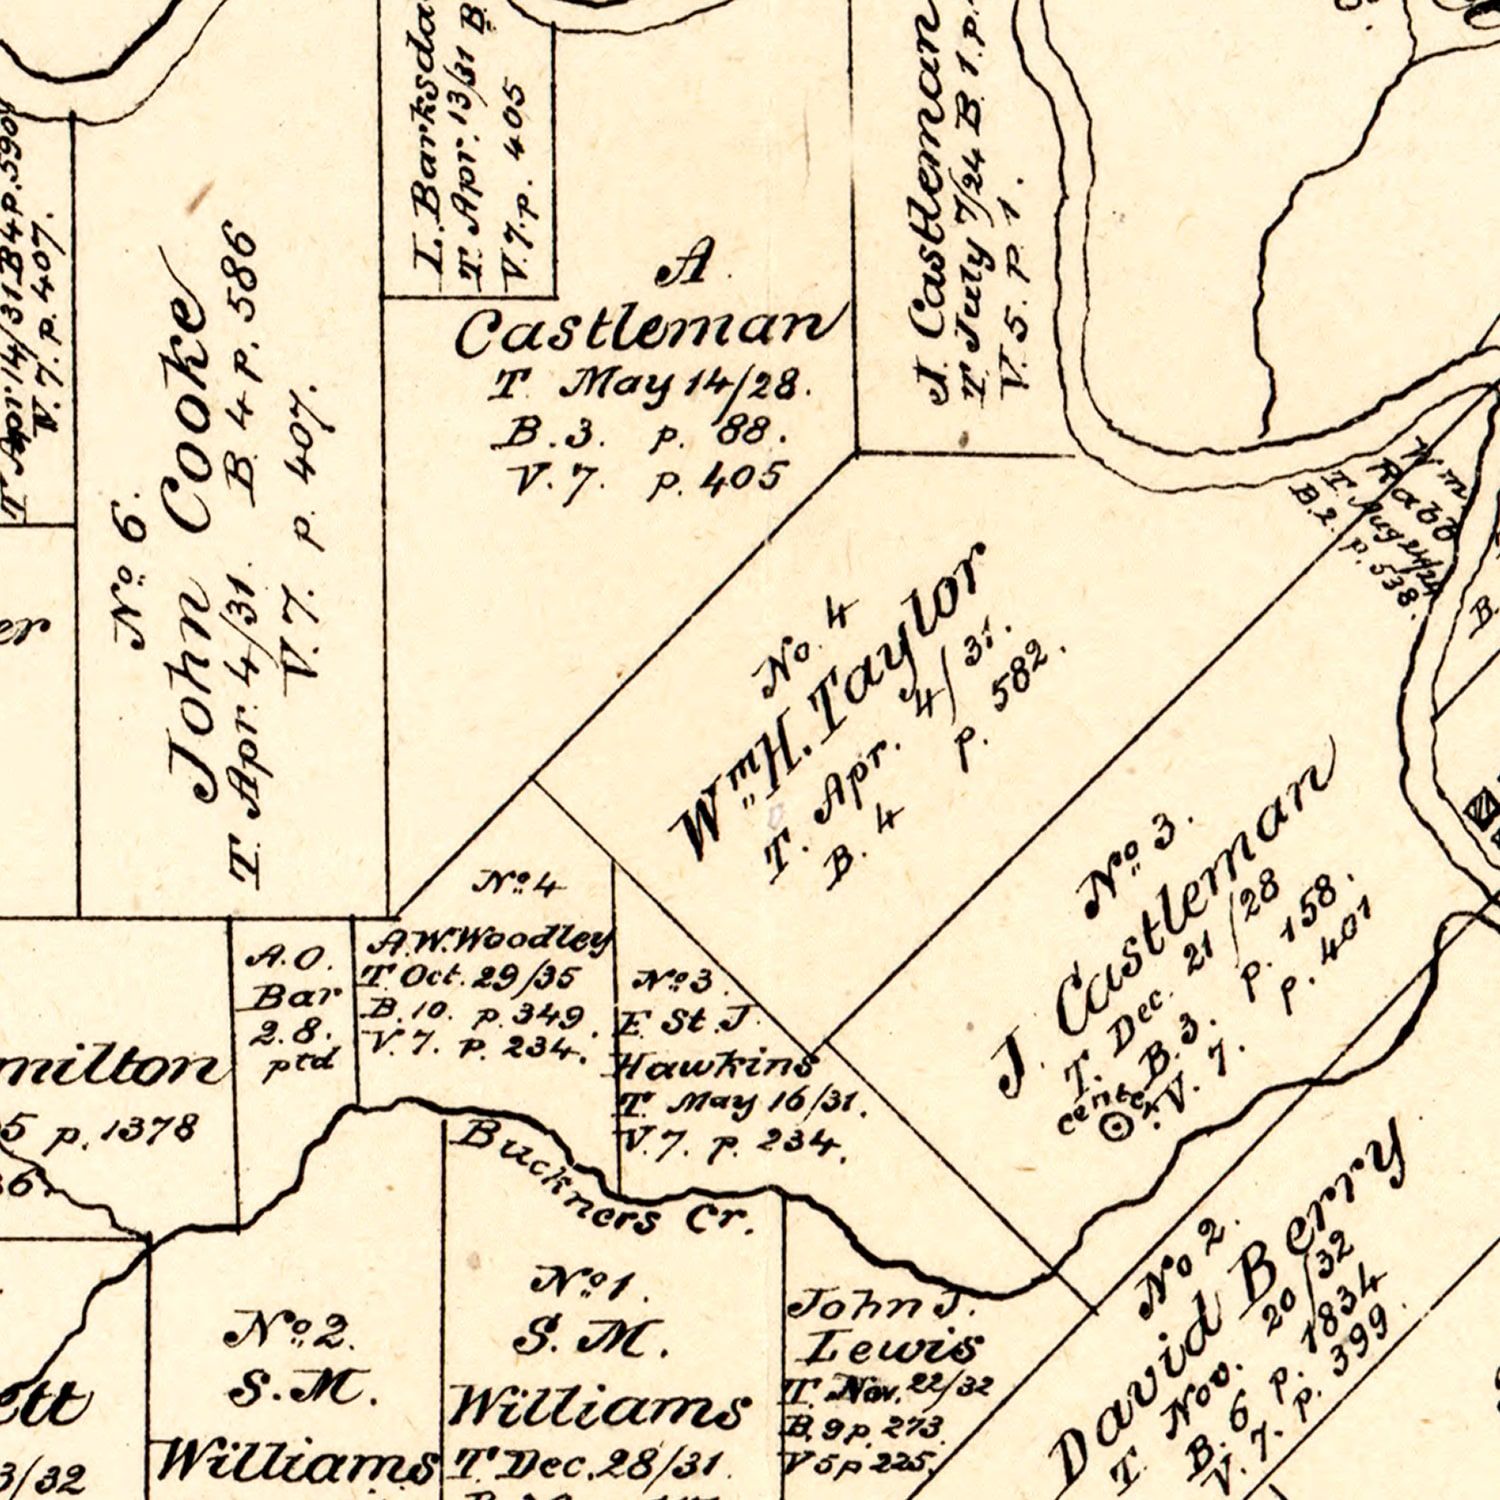 T Apr. 14/31 B4 p.590
V. 7. p. 407.
No. 6.
John Cooke
T. Apr. 4/31. B. 4 p. 586
V. 7. p. 407.
T. Apr. 13/31 B
V. 7. p. 405
A.
Castleman
T. May 14/28.
B. 3. p. 88.
V. 7. p. 405
J. Castleman
T. July 7/24 B. 1. p.
V. 5. p. 1.
Wm.
Rabb
T. Aug 24/24
B. 2. p. 538.
B.
er
No. 4
Wm. H. Taylor
T. Apr. 4/31.
B. 4 p. 582.
No. 3.
J. Castleman
T. Dec. 21/28
B. 3. p. 158.
V. 7. p. 401
center
No. 4
A.W. Woodley
T Oct. 29/35
B. 10. p. 349.
V. 7. p. 234.
A. O.
Bar
2. 8.
ptd
No. 3.
E. St. J.
Hawkins
T. May 16/31.
V. 7. p. 234.
milton
5 p. 1378
36.
Buckners Cr.
No. 2.
David Berry
T. Nov. 20/32
B. 6 p. 1834
V. 7. p. 399.
No. 2.
S. M.
Williams
No. 1.
S. M.
Williams
T. Dec. 28/31.
John J.
Lewis
T. Nov. 22/32
B. 9 p. 273.
V 5 p 225.
ett
3/32